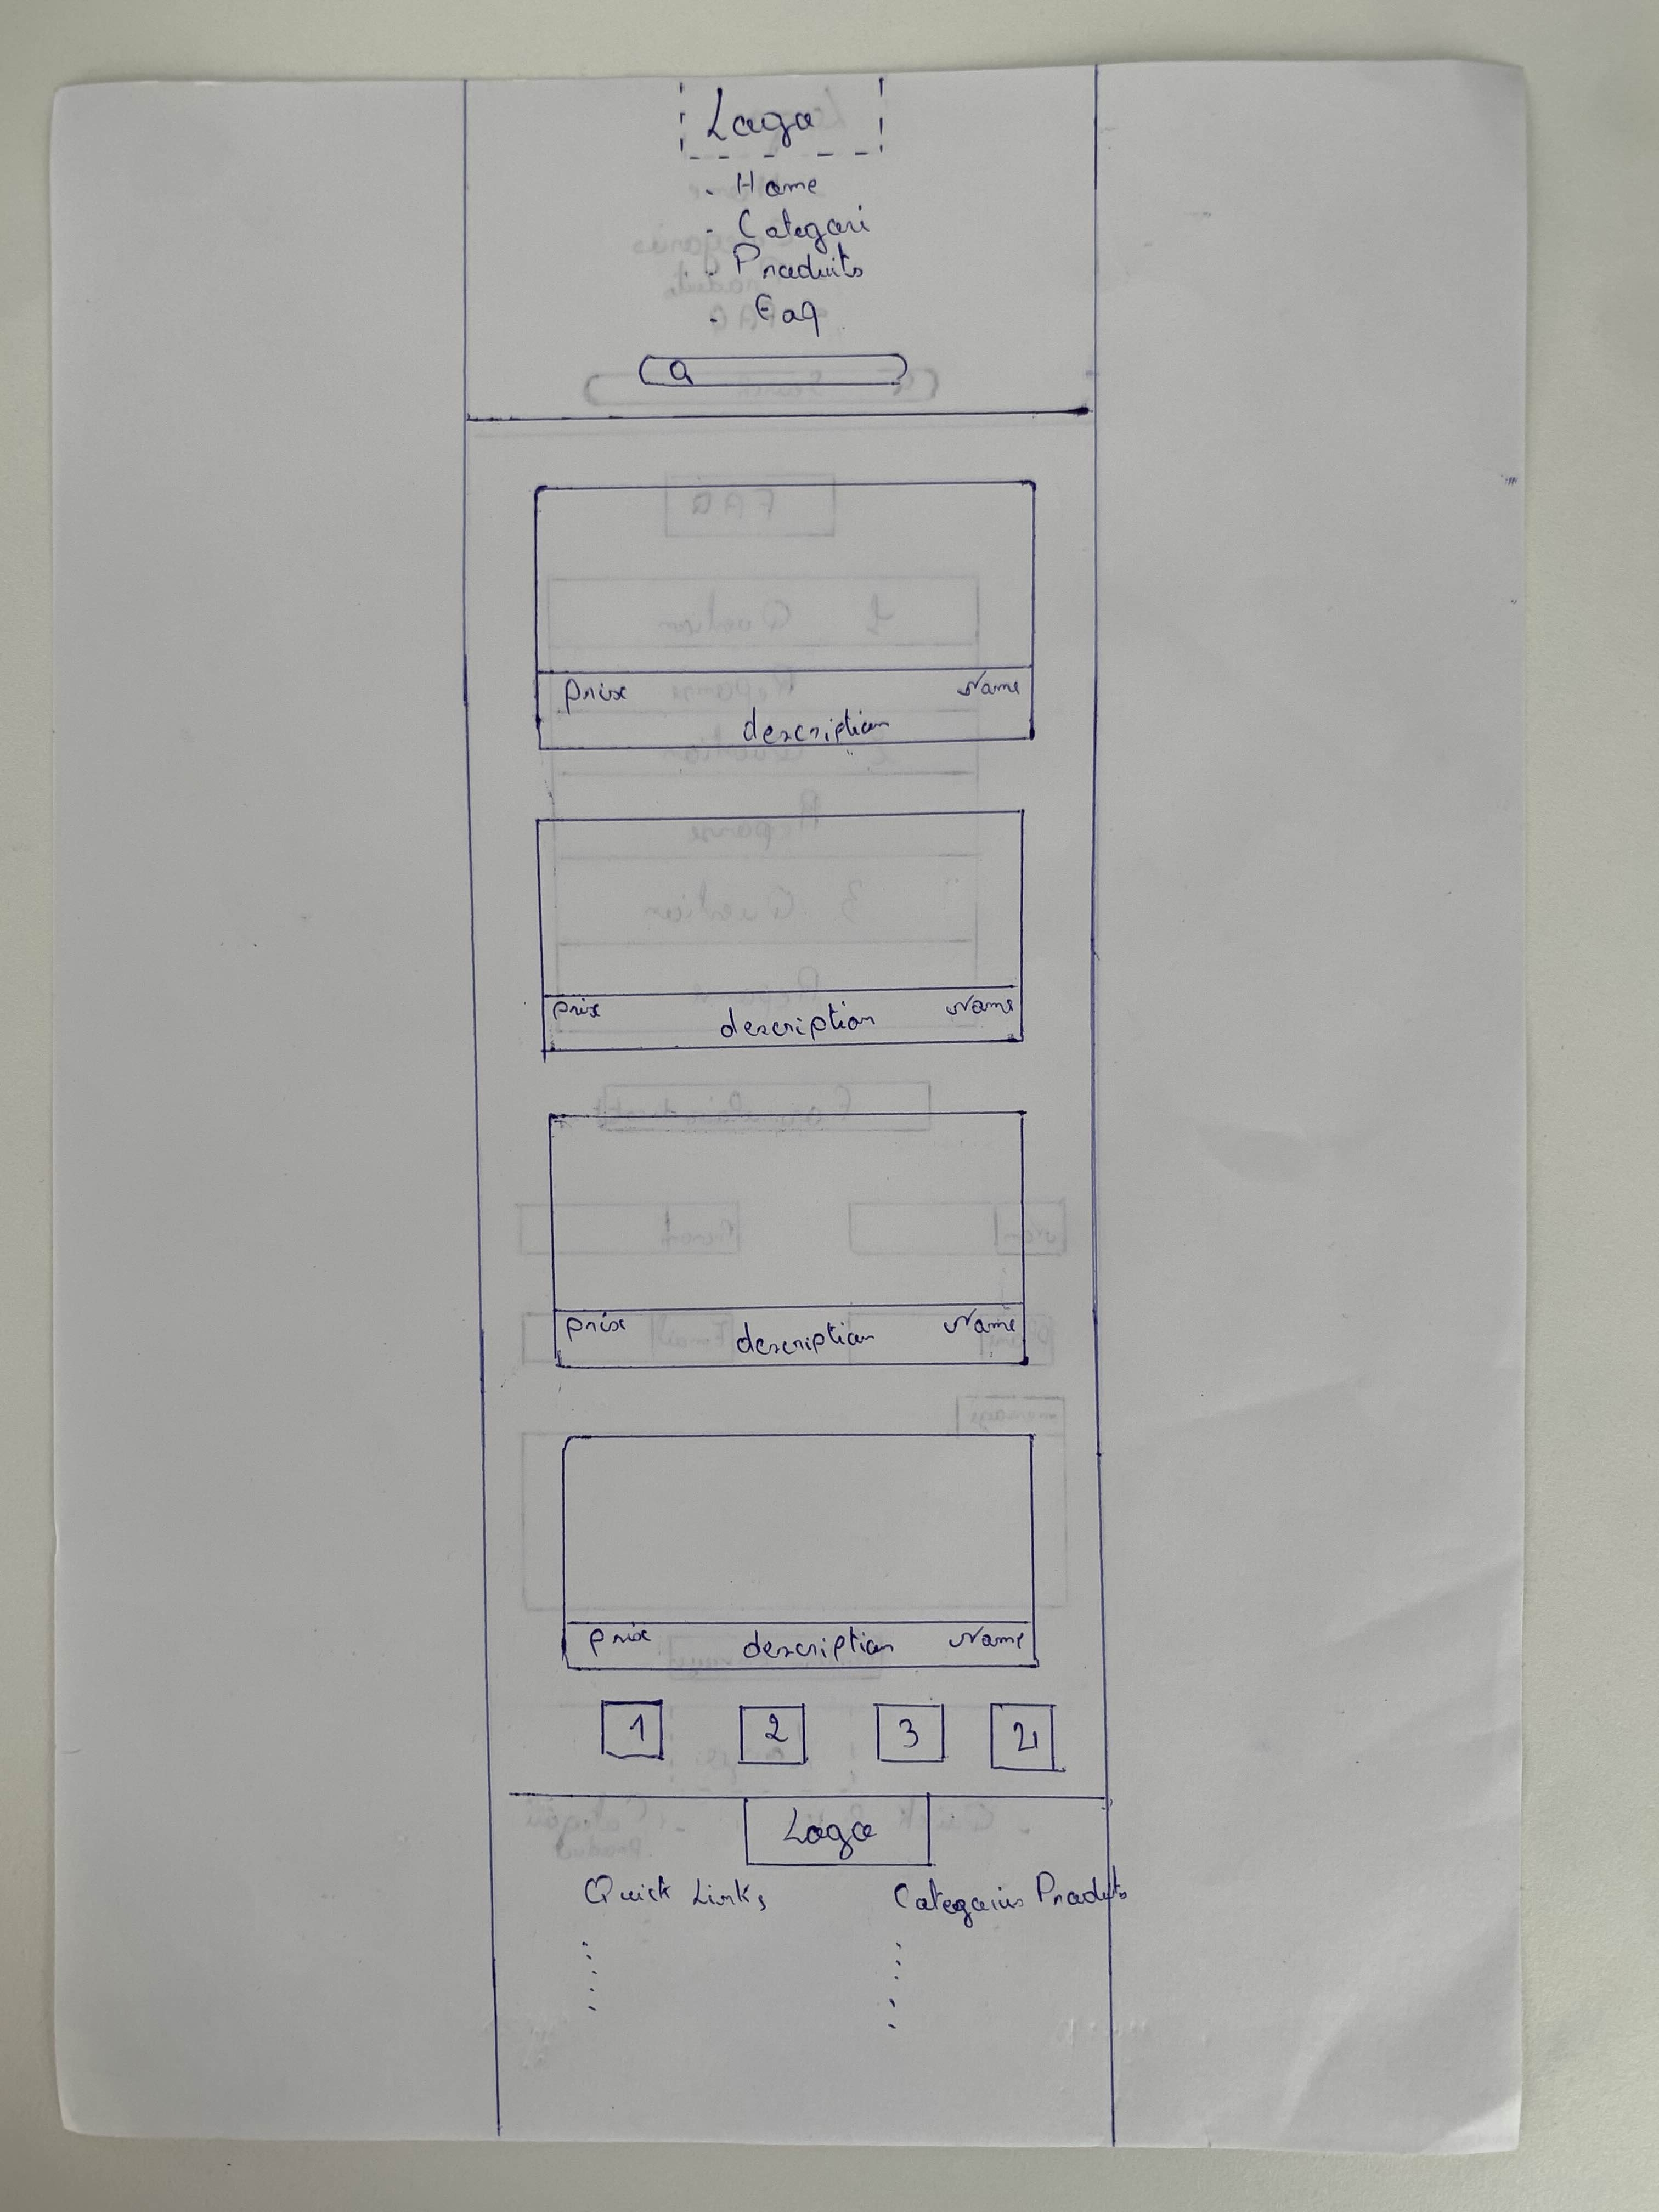 Logo
- Home
- Categori
- Produits
- Faq
prix Name
description
prix description Name
prix description Name
prix description Name
1 2 3 4
Logo
Quick Links Categories Produts